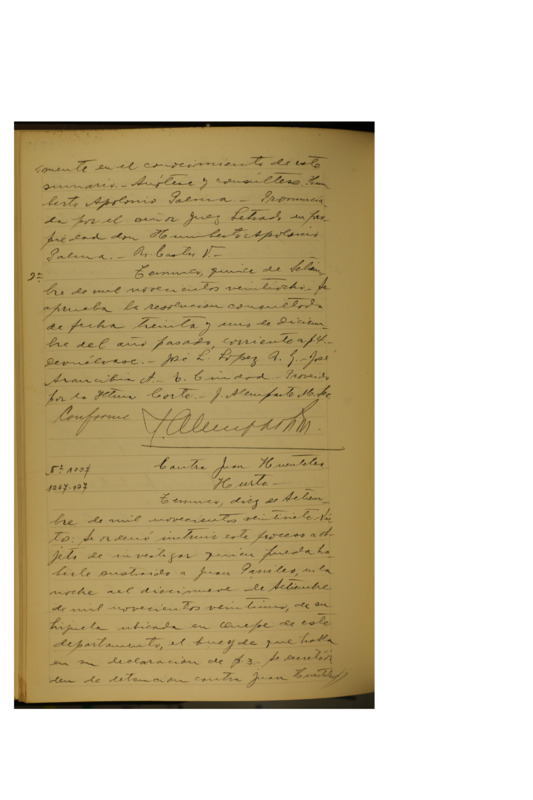 mente en el conocimiento de este
sumario.- Anótese y consúltese. Hum
berto Apolonio Palma.- Pronuncia
da por el señor Juez Letrado en pro
piedad don Humberto Apolonio
Palma.- R. Castro V.-
2ª. Temuco, quince de Setiem
bre de mil novecientos veintiocho.- Se
aprueba la resolucion consultada
de fecha treinta y uno de Diciem-
bre del año pasado, corriente a f 4.-
Devuélvase.- José L. López R. G.- José
Arancibia A.- Ciudad.- Proveido
por la Iltma Corte.- J. Alemparte M. Sec
Conforme
Nº 1227
1267-197
Contra Juan Huentelao
Hurto-
Temuco, diez de Setiem-
bre de mil novecientos veintisiete. Vis
tos: Se ordenó instruir este proceso a ob-
jeto de investigar quien pueda ha
berle sustraido a Juan en la
noche del diecinueve de Setiembre
de mil novecientos de su
hijuela ubicada en Quepe de este
departamento, el buey de que habla
en su declaracion de f 3.- Se decretó ór
den de detencion contra Juan